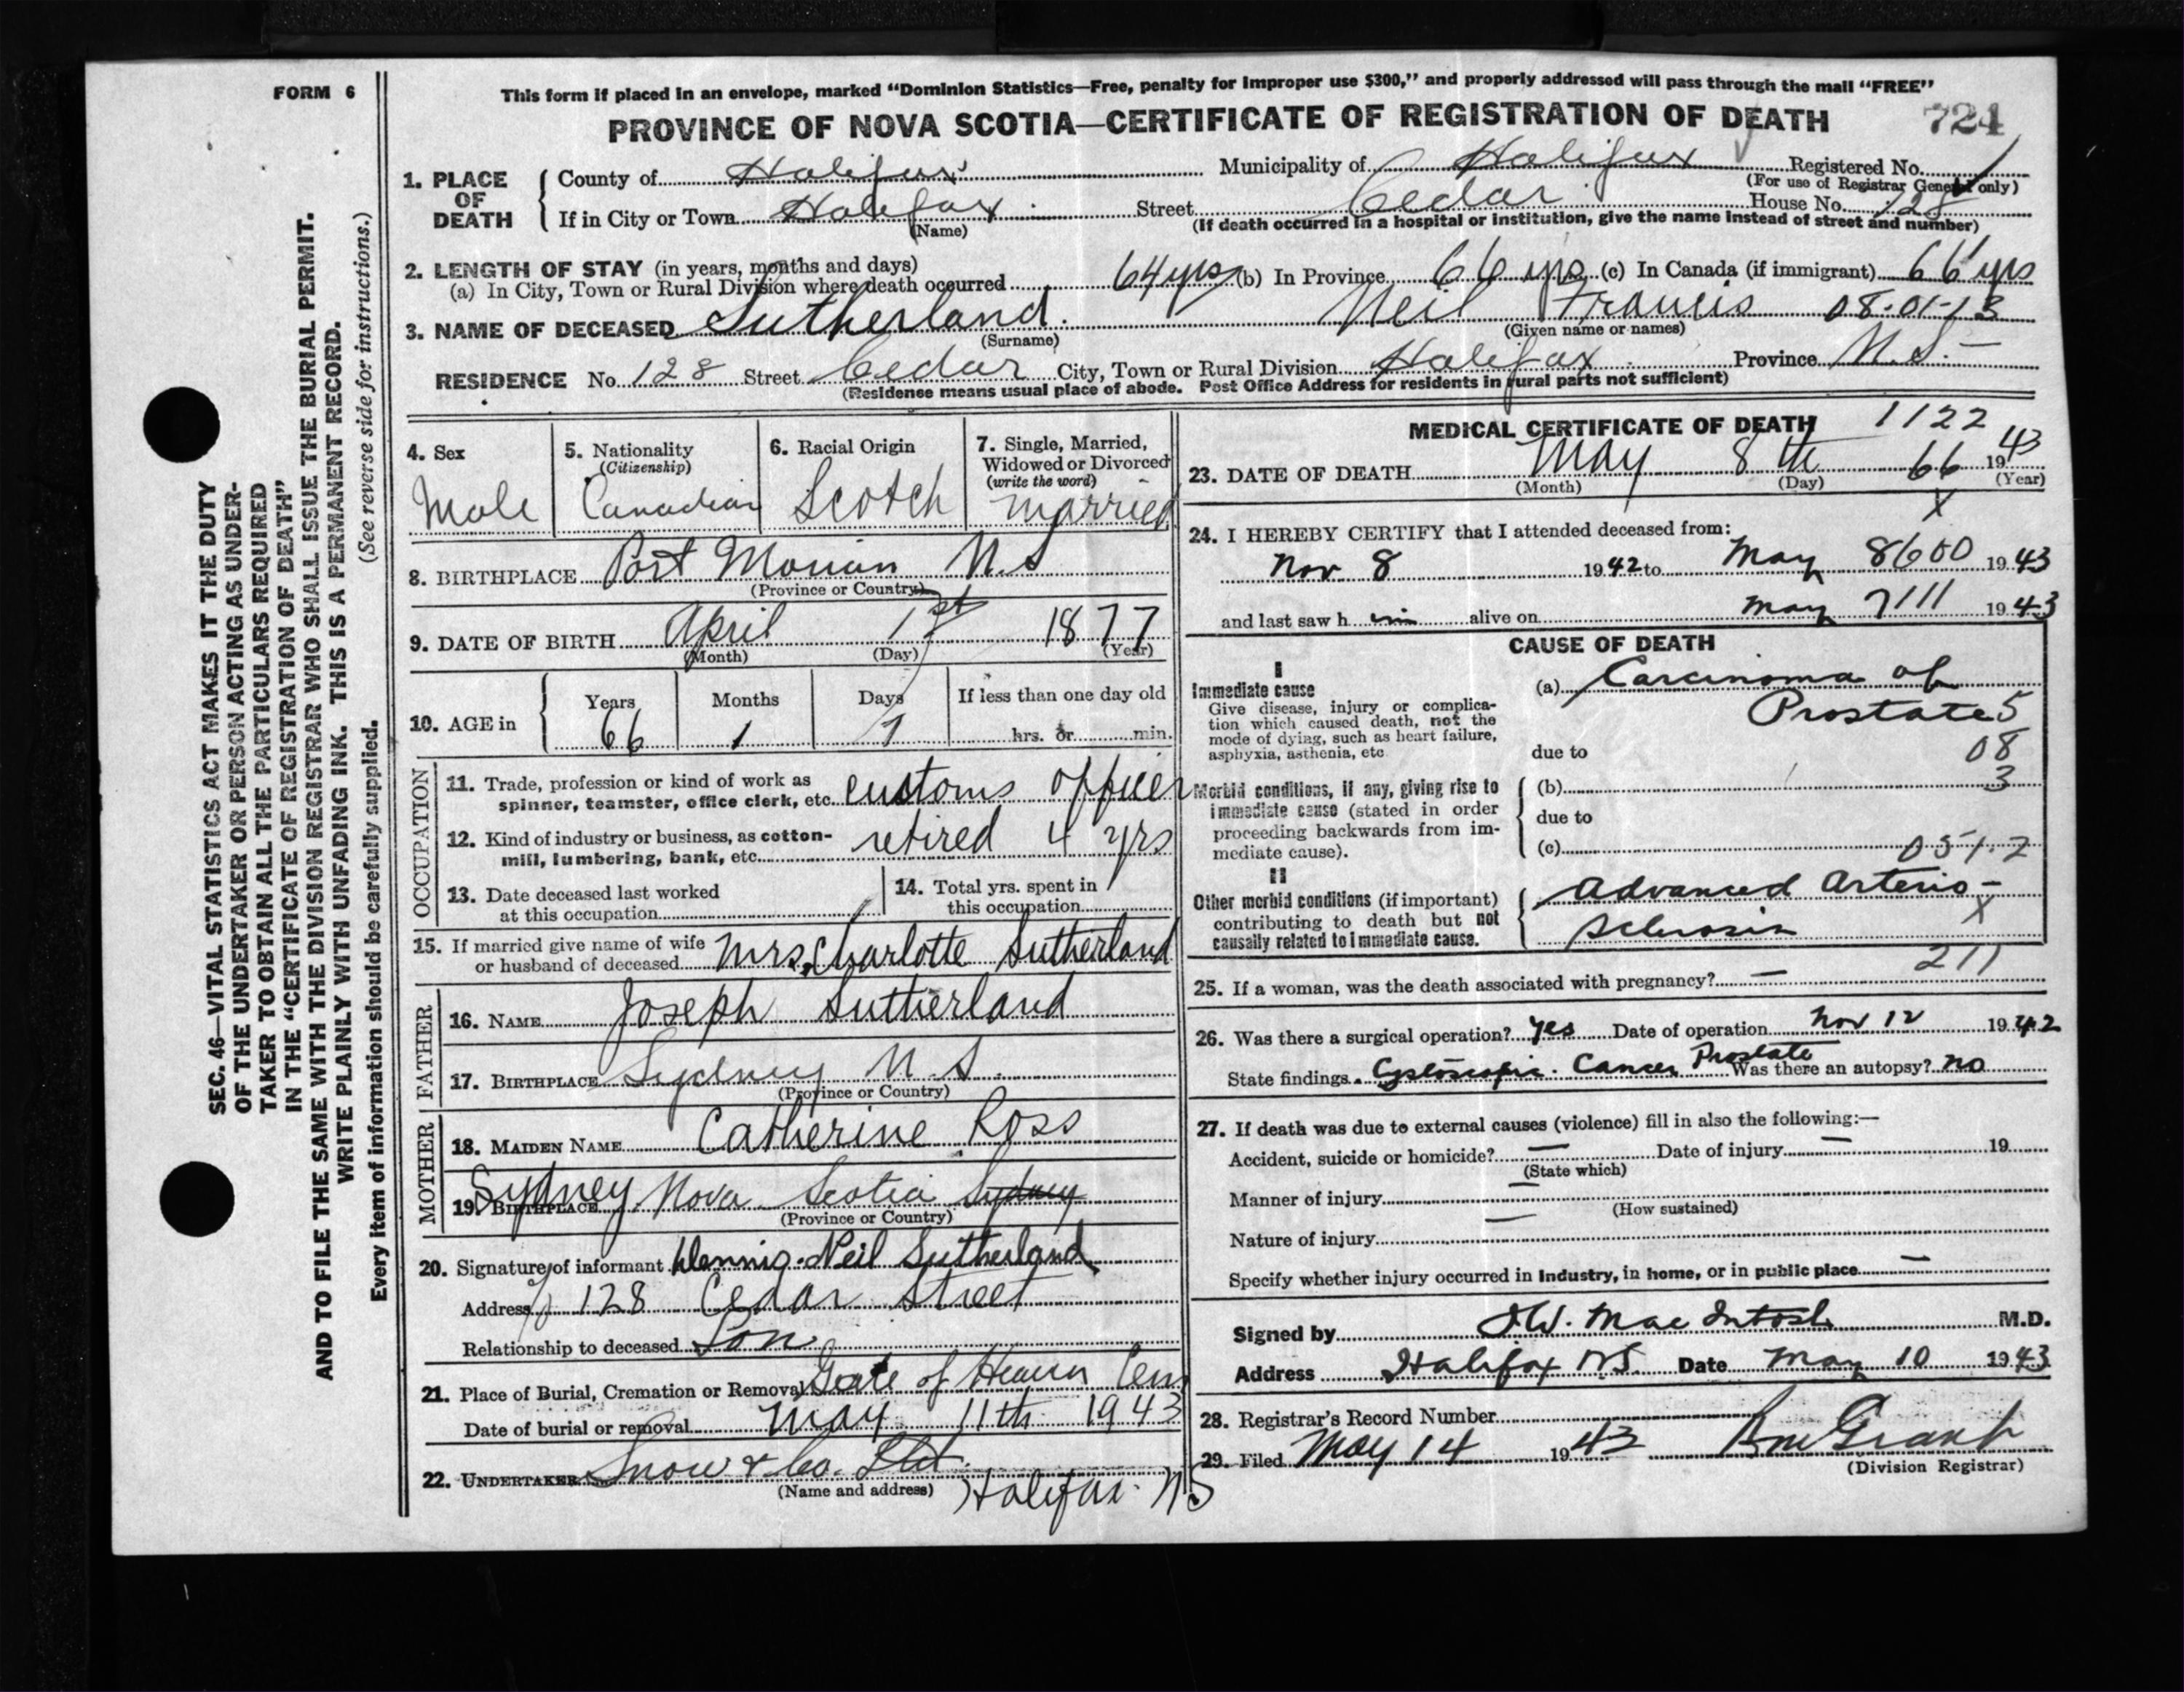 FORM 6
This form if placed in an envelope, marked “Dominion Statistics—Free, penalty for improper use $300,” and properly addressed will pass through the mail “FREE”
PROVINCE OF NOVA SCOTIA—CERTIFICATE OF REGISTRATION OF DEATH 724
SEC. 46—VITAL STATISTICS ACT MAKES IT THE DUTY
OF THE UNDERTAKER OR PERSON ACTING AS UNDER-
TAKER TO OBTAIN ALL THE PARTICULARS REQUIRED
IN THE “CERTIFICATE OF REGISTRATION OF DEATH”
AND TO FILE THE SAME WITH THE DIVISION REGISTRAR WHO SHALL ISSUE THE BURIAL PERMIT.
WRITE PLAINLY WITH UNFADING INK. THIS IS A PERMANENT RECORD.
(See reverse side for instructions.)
Every item of information should be carefully supplied.
1. PLACE OF DEATH
County of Halifax Municipality of Halifax Registered No.
(For use of Registrar General only)
If in City or Town Halifax Street Cedar House No. 128
(Name) (If death occurred in a hospital or institution, give the name instead of street and number)
2. LENGTH OF STAY (in years, months and days)
(a) In City, Town or Rural Division where death occurred 64 yrs (b) In Province 66 yrs (c) In Canada (if immigrant) 66 yrs
3. NAME OF DECEASED Sutherland Neil Francis 08-01-13
(Surname) (Given name or names)
RESIDENCE No. 128 Street Cedar City, Town or Rural Division Halifax Province N.S.
(Residence means usual place of abode. Post Office Address for residents in rural parts not sufficient)
4. Sex
Male
5. Nationality
(Citizenship)
Canadian
6. Racial Origin
Scotch
7. Single, Married,
Widowed or Divorced
(write the word)
married
8. BIRTHPLACE Port Morien N.S
(Province or Country)
9. DATE OF BIRTH April 1st 1877
(Month) (Day) (Year)
10. AGE in
Years Months Days If less than one day old
66 1 7 hrs. or min.
OCCUPATION
11. Trade, profession or kind of work as
spinner, teamster, office clerk, etc. customs officer
12. Kind of industry or business, as cotton-
mill, lumbering, bank, etc. retired 4 yrs
13. Date deceased last worked
at this occupation
14. Total yrs. spent in
this occupation
15. If married give name of wife
or husband of deceased Mrs. Charlotte Sutherland
FATHER
16. NAME Joseph Sutherland
17. BIRTHPLACE Sydney N.S.
(Province or Country)
MOTHER
18. MAIDEN NAME Catherine Ross
19. BIRTHPLACE Sydney Nova Scotia Sydney
(Province or Country)
20. Signature of informant Dennis Neil Sutherland
Address 128 Cedar Street
Relationship to deceased Son
21. Place of Burial, Cremation or Removal Gate of Heaven Cem
Date of burial or removal May 11th 1943
22. UNDERTAKER Snow & Co. Ltd.
(Name and address) Halifax N.S
MEDICAL CERTIFICATE OF DEATH 1122
23. DATE OF DEATH May 8th 66 1943
(Month) (Day) (Year)
X
24. I HEREBY CERTIFY that I attended deceased from:
Nov 8 1942 to May 8 600 1943
and last saw him alive on May 7 111 1943
CAUSE OF DEATH
I
Immediate cause
Give disease, injury or complica-
tion which caused death, not the
mode of dying, such as heart failure,
asphyxia, asthenia, etc
(a) Carcinoma of
Prostate 5
due to 08
Morbid conditions, if any, giving rise to
immediate cause (stated in order
proceeding backwards from im-
mediate cause).
(b) 3
due to
(c) 051.2
II
Other morbid conditions (if important)
contributing to death but not
causally related to immediate cause.
Advanced Arterio-
sclerosis X
211
25. If a woman, was the death associated with pregnancy? —
26. Was there a surgical operation? Yes Date of operation Nov 12 1942
State findings. Cystoscopic. Cancer Prostate Was there an autopsy? no
27. If death was due to external causes (violence) fill in also the following:—
Accident, suicide or homicide? — Date of injury — 19
(State which)
Manner of injury —
(How sustained)
Nature of injury —
Specify whether injury occurred in industry, in home, or in public place —
Signed by J.W. MacIntosh M.D.
Address Halifax N.S. Date May 10 1943
28. Registrar's Record Number
29. Filed May 14 1943
(Division Registrar)